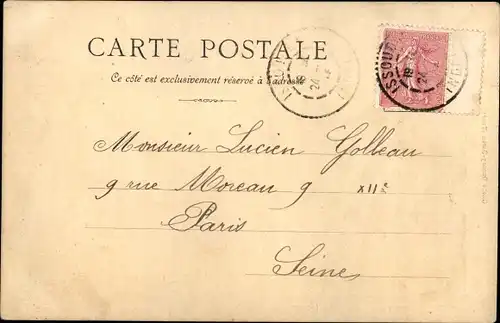 CARTE POSTALE
Ce côté est exclusivement réservé à l'adresse
ISSOUD
18
24
ISSOUD
18
24
Monsieur Lucien Golleau
9 rue Moreau 9 XIIe
Paris
Seine